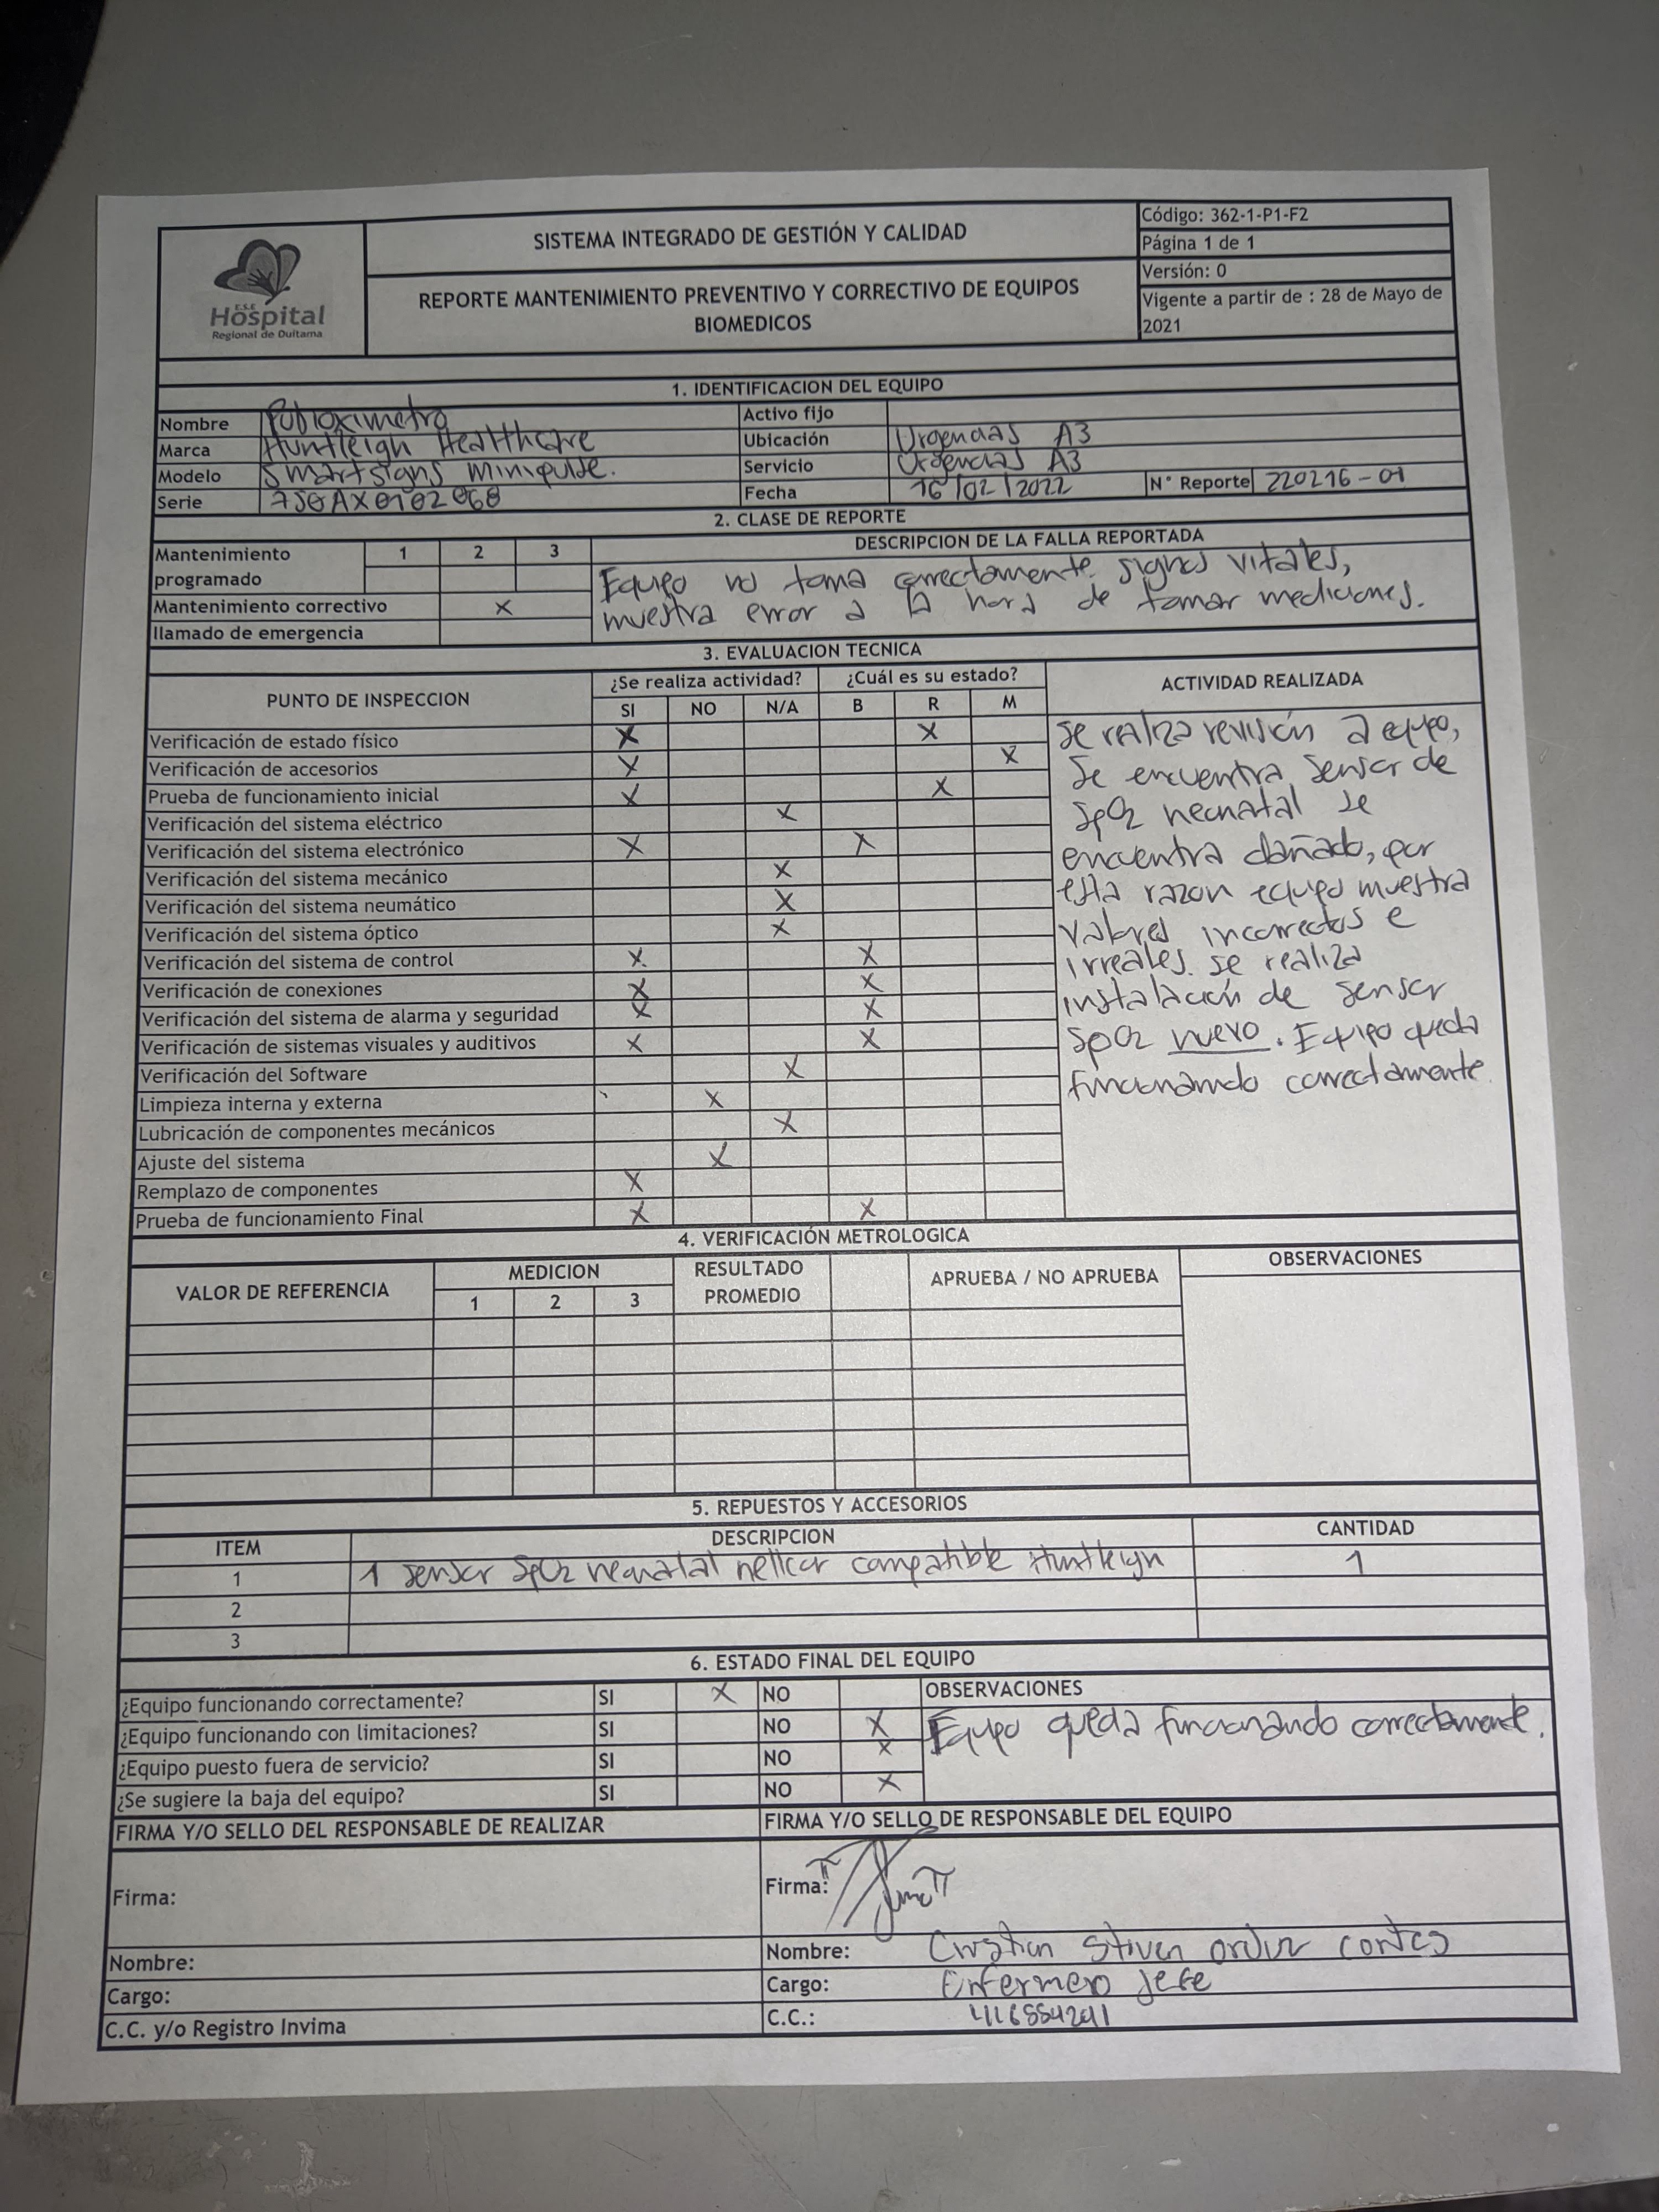 E.S.E
Hospital
Regional de Duitama
SISTEMA INTEGRADO DE GESTIÓN Y CALIDAD
REPORTE MANTENIMIENTO PREVENTIVO Y CORRECTIVO DE EQUIPOS
BIOMEDICOS
Código: 362-1-P1-F2
Página 1 de 1
Versión: 0
Vigente a partir de : 28 de Mayo de
2021
1. IDENTIFICACION DEL EQUIPO
Nombre Activo fijo
Marca Huntleigh Healthcare Ubicación Urgencias A3
Modelo Smartsigns minipulse. Servicio Urgencias A3
Serie Fecha 16/02/2022 N° Reporte 220216-01
2. CLASE DE REPORTE
Mantenimiento
programado
1 2 3
Mantenimiento correctivo X
llamado de emergencia
DESCRIPCION DE LA FALLA REPORTADA
Equipo no toma correctamente signos vitales,
muestra error a la hora de tomar mediciones.
3. EVALUACION TECNICA
PUNTO DE INSPECCION ¿Se realiza actividad? ¿Cuál es su estado? ACTIVIDAD REALIZADA
SI NO N/A B R M
Verificación de estado físico X X
Verificación de accesorios X X
Prueba de funcionamiento inicial X X
Verificación del sistema eléctrico X
Verificación del sistema electrónico X X
Verificación del sistema mecánico X
Verificación del sistema neumático X
Verificación del sistema óptico X
Verificación del sistema de control X X
Verificación de conexiones X X
Verificación del sistema de alarma y seguridad X X
Verificación de sistemas visuales y auditivos X X
Verificación del Software X
Limpieza interna y externa X
Lubricación de componentes mecánicos X
Ajuste del sistema X
Remplazo de componentes X
Prueba de funcionamiento Final X X
Se realiza revisión a equipo,
se encuentra sensor de
SpO2 neonatal se
encuentra dañado, por
esta razon equipo muestra
valores incorrectos e
irreales. se realiza
instalación de sensor
SpO2 nuevo. Equipo queda
funcionando correctamente.
4. VERIFICACIÓN METROLOGICA
VALOR DE REFERENCIA MEDICION RESULTADO
PROMEDIO APRUEBA / NO APRUEBA OBSERVACIONES
1 2 3
5. REPUESTOS Y ACCESORIOS
ITEM DESCRIPCION CANTIDAD
1 1 sensor SpO2 neonatal nellcor compatible Huntleigh 1
2
3
6. ESTADO FINAL DEL EQUIPO
¿Equipo funcionando correctamente? SI X NO
¿Equipo funcionando con limitaciones? SI NO X
¿Equipo puesto fuera de servicio? SI NO X
¿Se sugiere la baja del equipo? SI NO X
OBSERVACIONES
Equipo queda funcionando correctamente.
FIRMA Y/O SELLO DEL RESPONSABLE DE REALIZAR
FIRMA Y/O SELLO DE RESPONSABLE DEL EQUIPO
Firma: Firma:
Nombre: Nombre: Cristian Stiven
Cargo: Cargo: Enfermero Jefe
C.C. y/o Registro Invima C.C.: